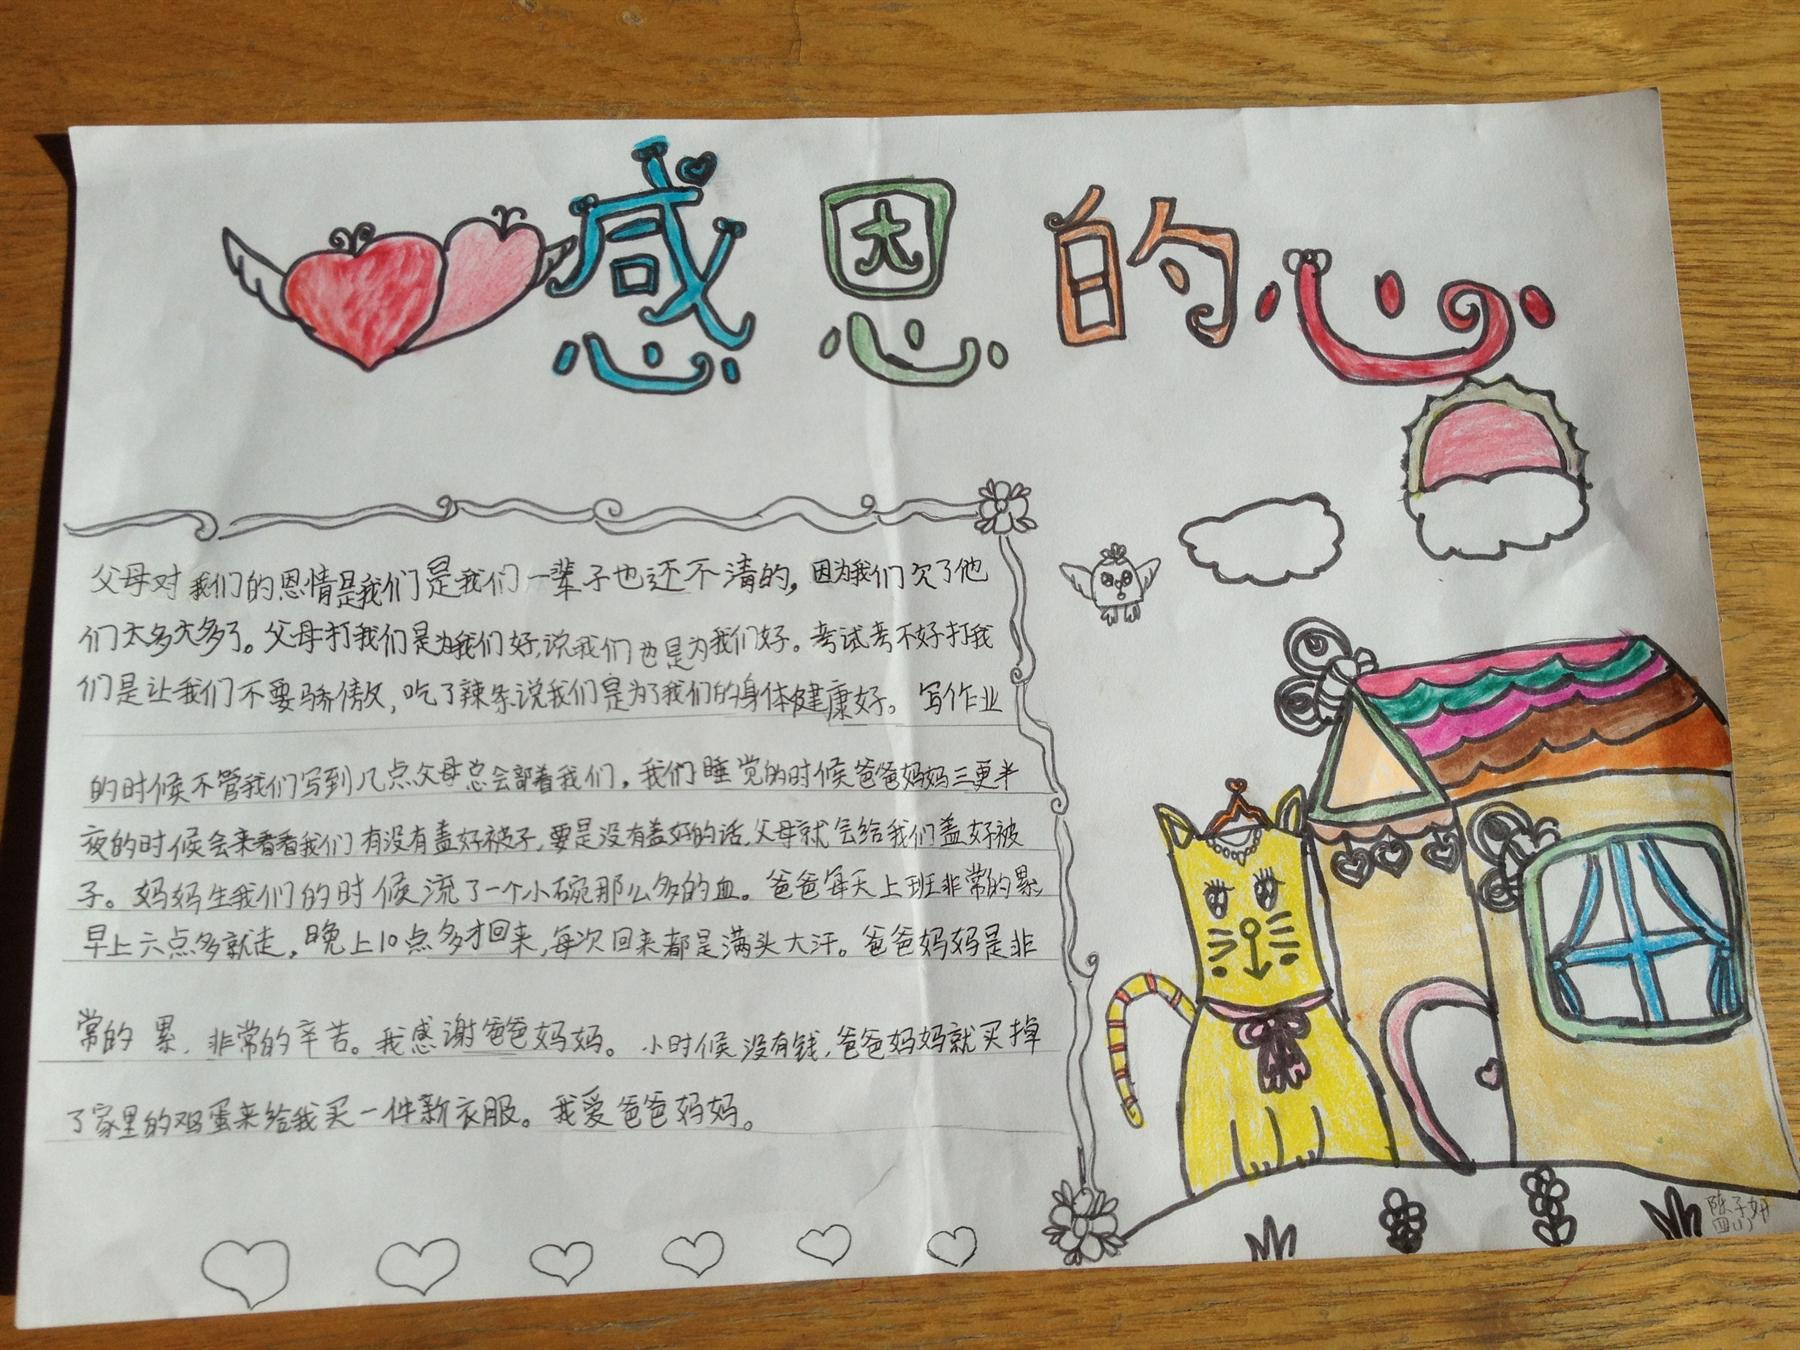 感恩的心
父母对我们的恩情是我们是我们一辈子也还不清的。因为我们欠了他
们太多太多了。父母打我们是为我们好,说我们也是为我们好。考试考不好打我
们是让我们不要骄傲,吃了辣条说我们是为了我们的身体健康好。写作业
的时候不管我们写到几点父母总会部着我们。我们睡觉的时候爸爸妈妈三更半
夜的时候会来看看我们有没有盖好被子,要是没有盖好的话,父母就会给我们盖好被
子。妈妈生我们的时候流了一个小碗那么多的血。爸爸每天上班非常的累,
早上六点多就走。晚上10点多才回来,每次回来都是满头大汗。爸爸妈妈是非
常的累,非常的辛苦。我感谢爸爸妈妈。小时候没有钱,爸爸妈妈就买掉
了家里的鸡蛋来给我买一件新衣服。我爱爸爸妈妈。
陈子妍
四(1)